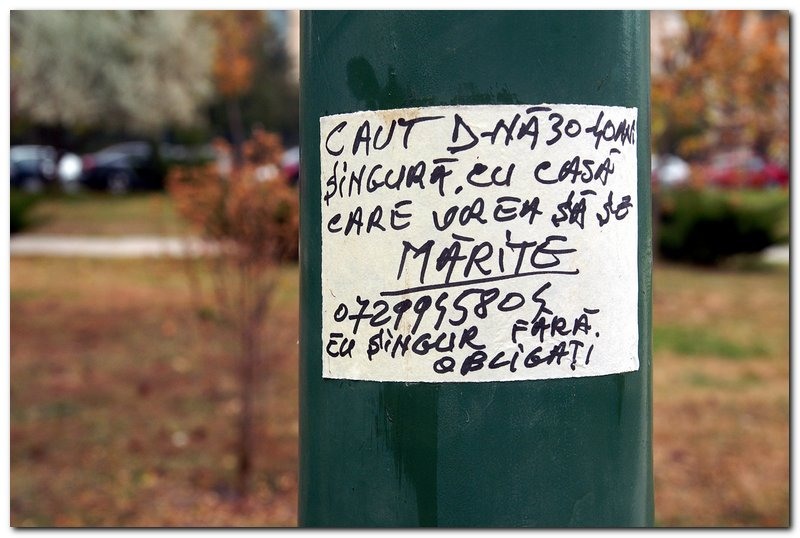 CAUT D-NĂ 30-40 ANI
SINGURĂ, CU CASĂ
CARE VREA SĂ SE
MĂRITE
0729945804
EU SINGUR FĂRĂ
OBLIGAȚI